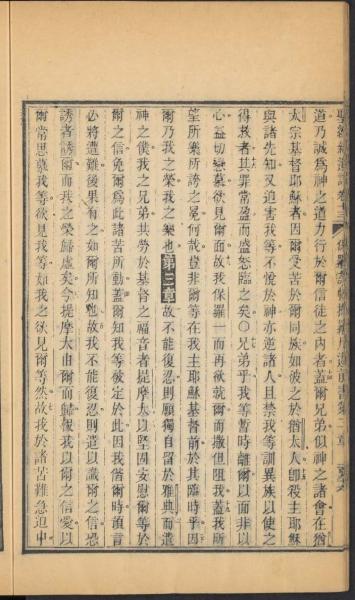 道乃誠爲神之道力行於爾信徒之内者蓋爾兄弟似神之諸會在猶
太宗基督耶穌者因爾受苦於爾同族如彼之於猶太人卽殺主耶穌
與諸先知又迫害我等不悅於神亦逆諸人且禁我等訓異族以使之
得救者其罪常盈而盛怒臨之矣〇兄弟乎我等暫時離爾以面非以
心益切戀慕欲見爾面故我保羅一而再欲就爾而撒但阻我蓋我所
望所樂所誇之冕何哉豈非爾等在我主耶穌基督前於其臨時乎因
爾乃我之榮我之樂也第三章故不能復忍則願獨自留於雅典而遣
神之僕我之兄弟共勞於基督之福音者提摩太以堅固安慰爾等於
爾之信免爾爲此諸苦所動蓋爾知我等被定於此因我偕爾時預言
必將遭難後果有之如爾所知也故我不能復忍則遣以識爾之信恐
誘者誘爾而我之榮歸虛矣今提摩太由爾而歸報我以爾之信愛以
爾常思慕我等欲見我等如我之欲見爾等然故我於諸苦難急迫中